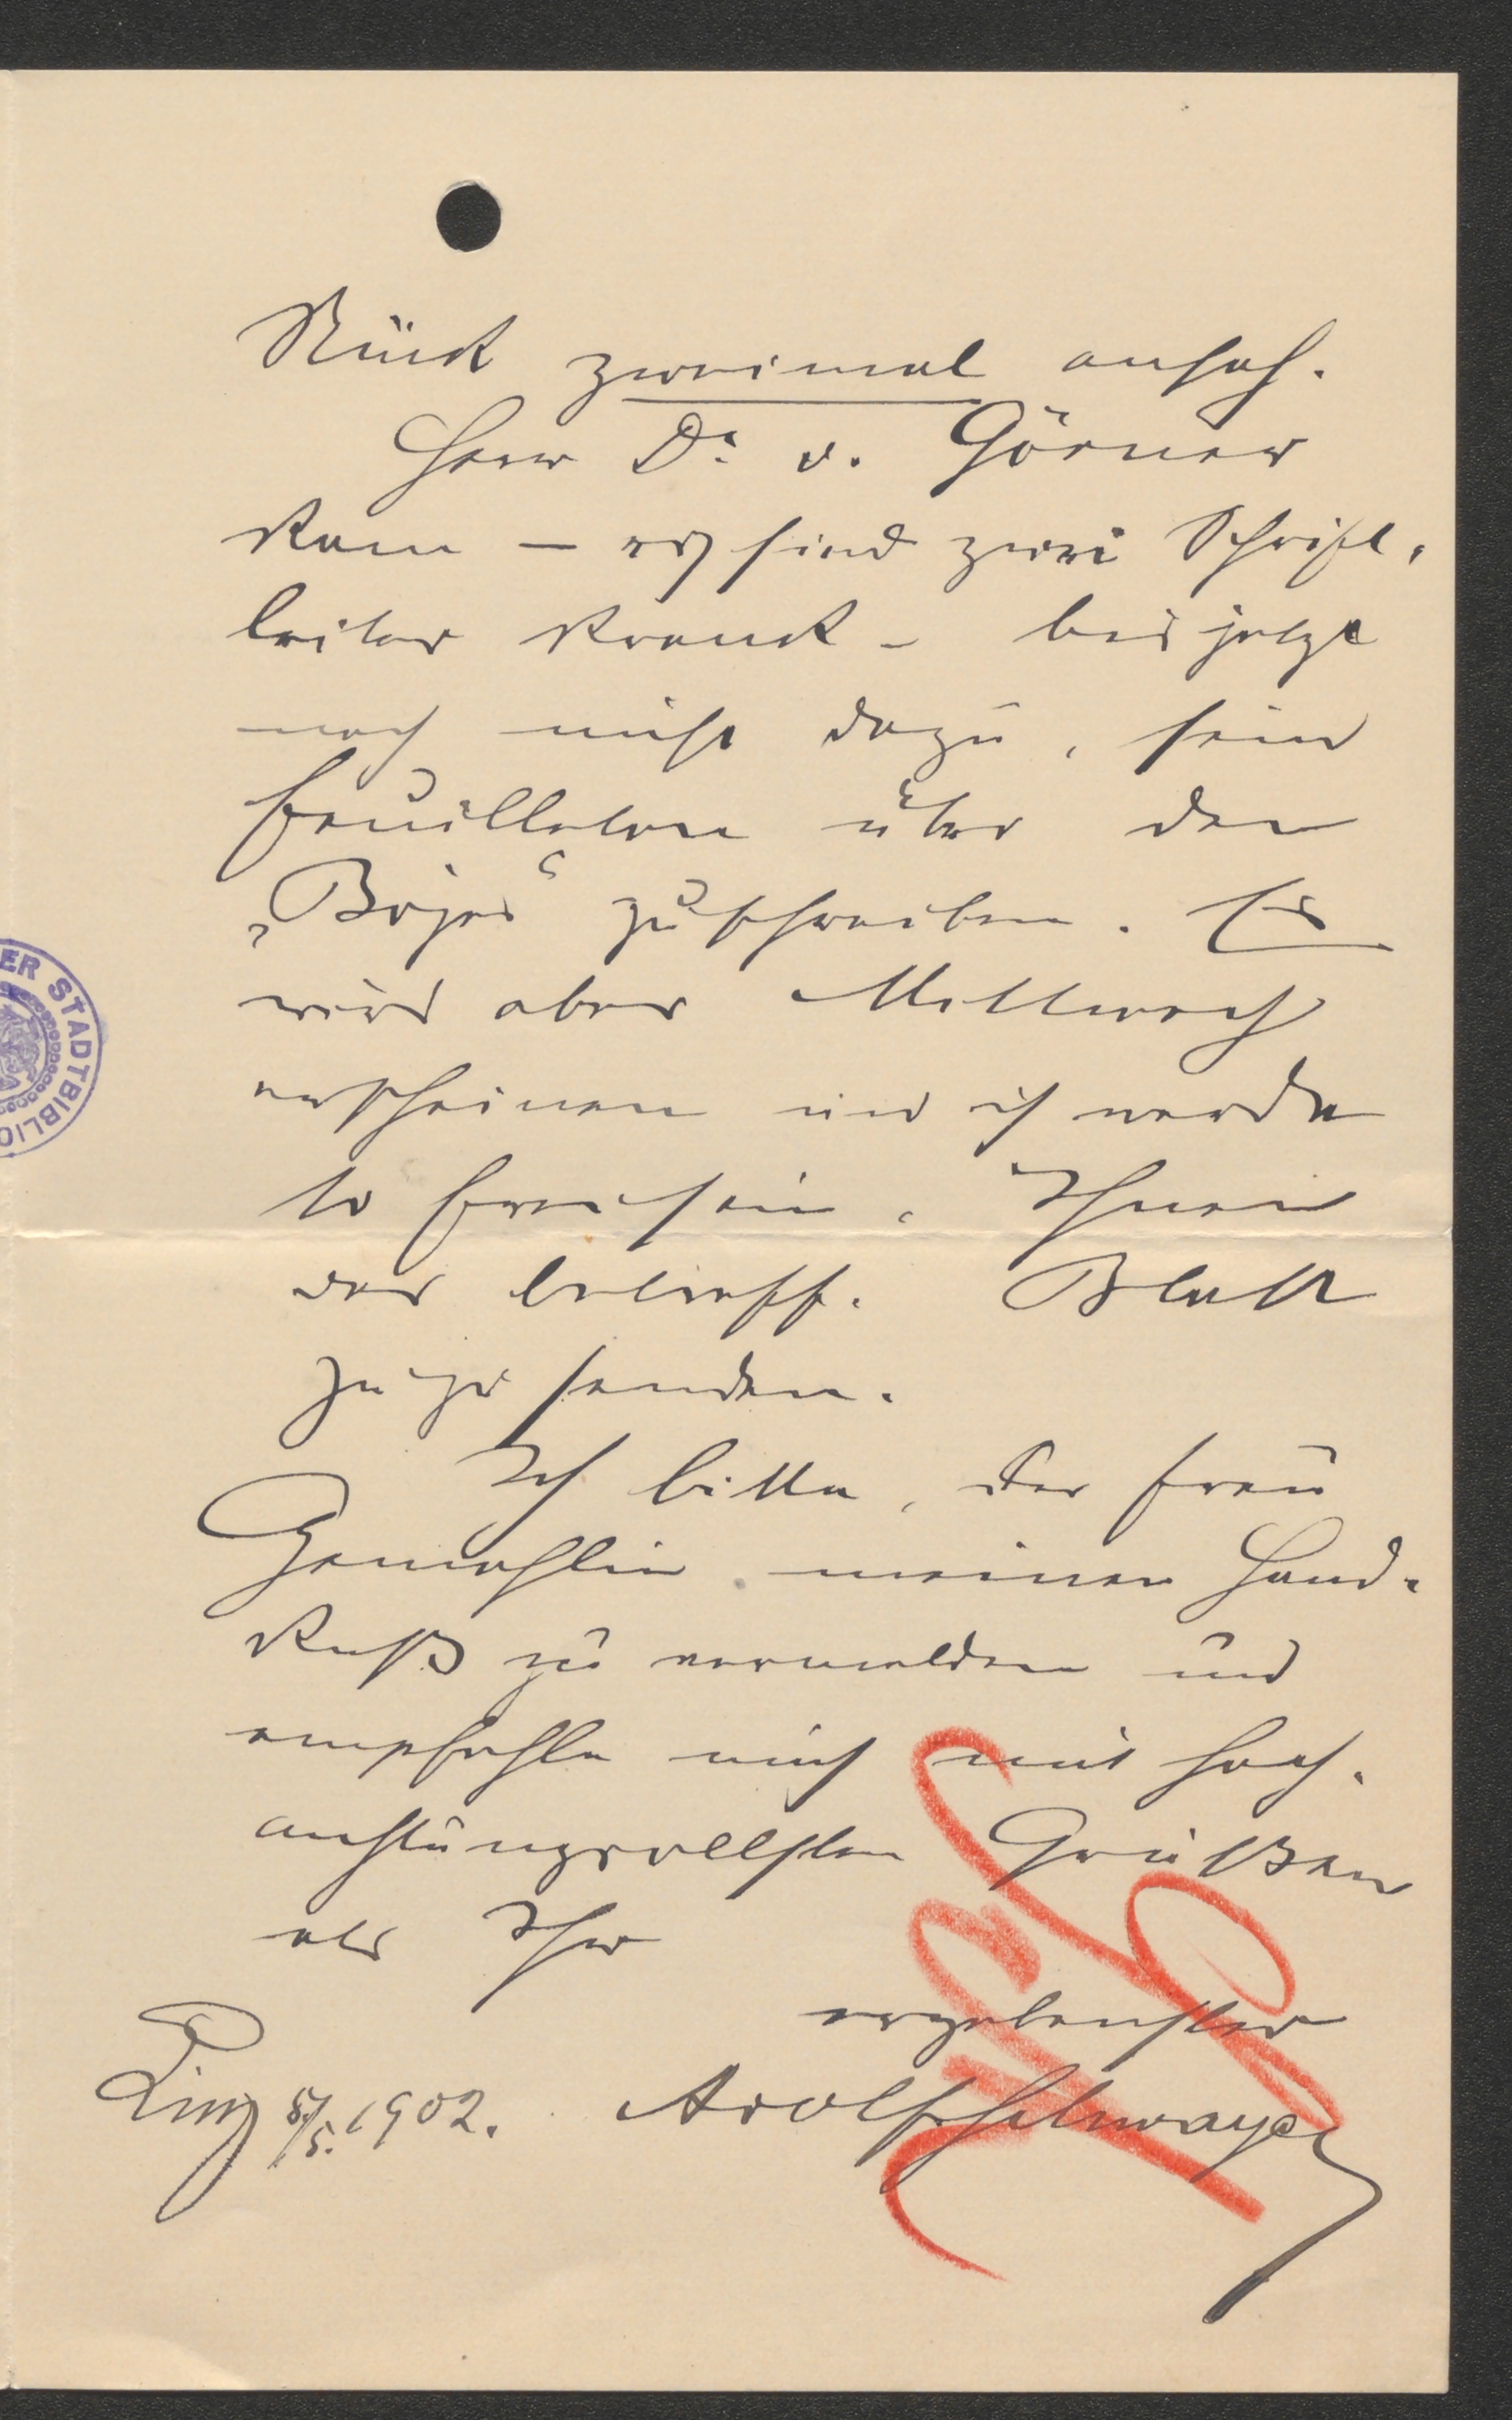 Stück zweimal ansah.
Herr Dr. v. Görner
kam – es sind zwei Schrift-
leiter krank – bis jetzt
noch nicht dazu, sein
Feuilleton über den
„Bojer“ zu schreiben. Es
wird aber Mittwoch
erscheinen und ich werde
so frei sein, Ihnen
das betreff. Blatt
zuzusenden.
Ich bitte, der Frau
Gemahlin meinen Hand-
kuß zu vermelden und
empfehle mich mit hoch-
achtungsvollsten Grüßen
als Ihr
ergebenster
Linz 5./5. 1902. Adolf
ER STADTBIBLIO